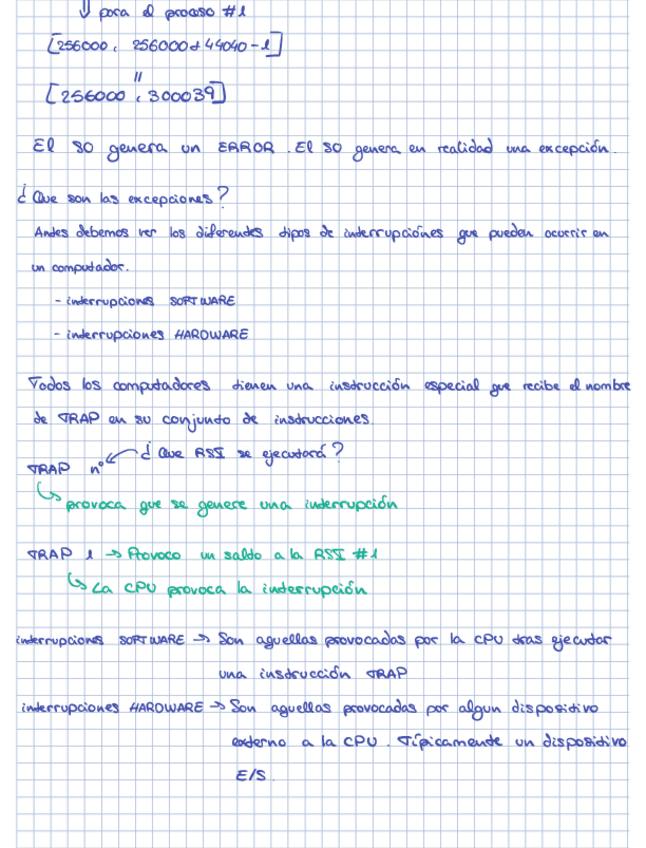 ⇓ para el proceso #1
[256000, 256000+44040-1]
"
[256000, 300039]
El SO genera un ERROR. El SO genera en realidad una excepción.
¿Que son las excepciones?
Antes debemos ver los diferentes tipos de interrupciónes que pueden ocurrir en
un computador.
- interrupciones SOFTWARE
- interrupciones HARDWARE
Todos los computadores tienen una instrucción especial que recibe el nombre
de TRAP en su conjunto de instrucciones.
TRAP nº ← ¿Que RSI se ejecutará?
↳ provoca que se genere una interrupción
TRAP 1 → Provoco un salto a la RSI #1
↳ La CPU provoca la interrupción
interrupciones SOFTWARE → Son aquellas provocadas por la CPU tras ejecutar
una instrucción TRAP
interrupciones HARDWARE → Son aquellas provocadas por algun dispositivo
externo a la CPU. Típicamente un dispositivo
E/S.